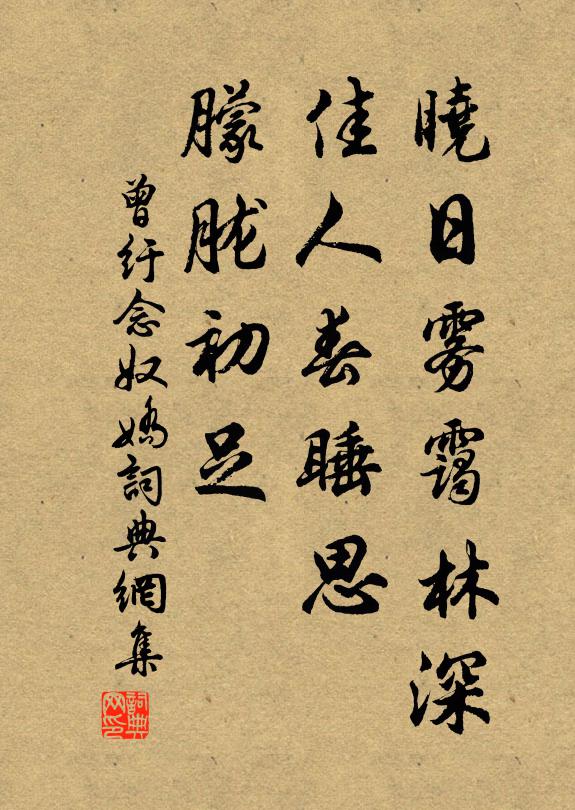 曉日雰靄林深
佳人春睡思
朦朧初足
曾紆念奴嬌詞典網集
詞典网印